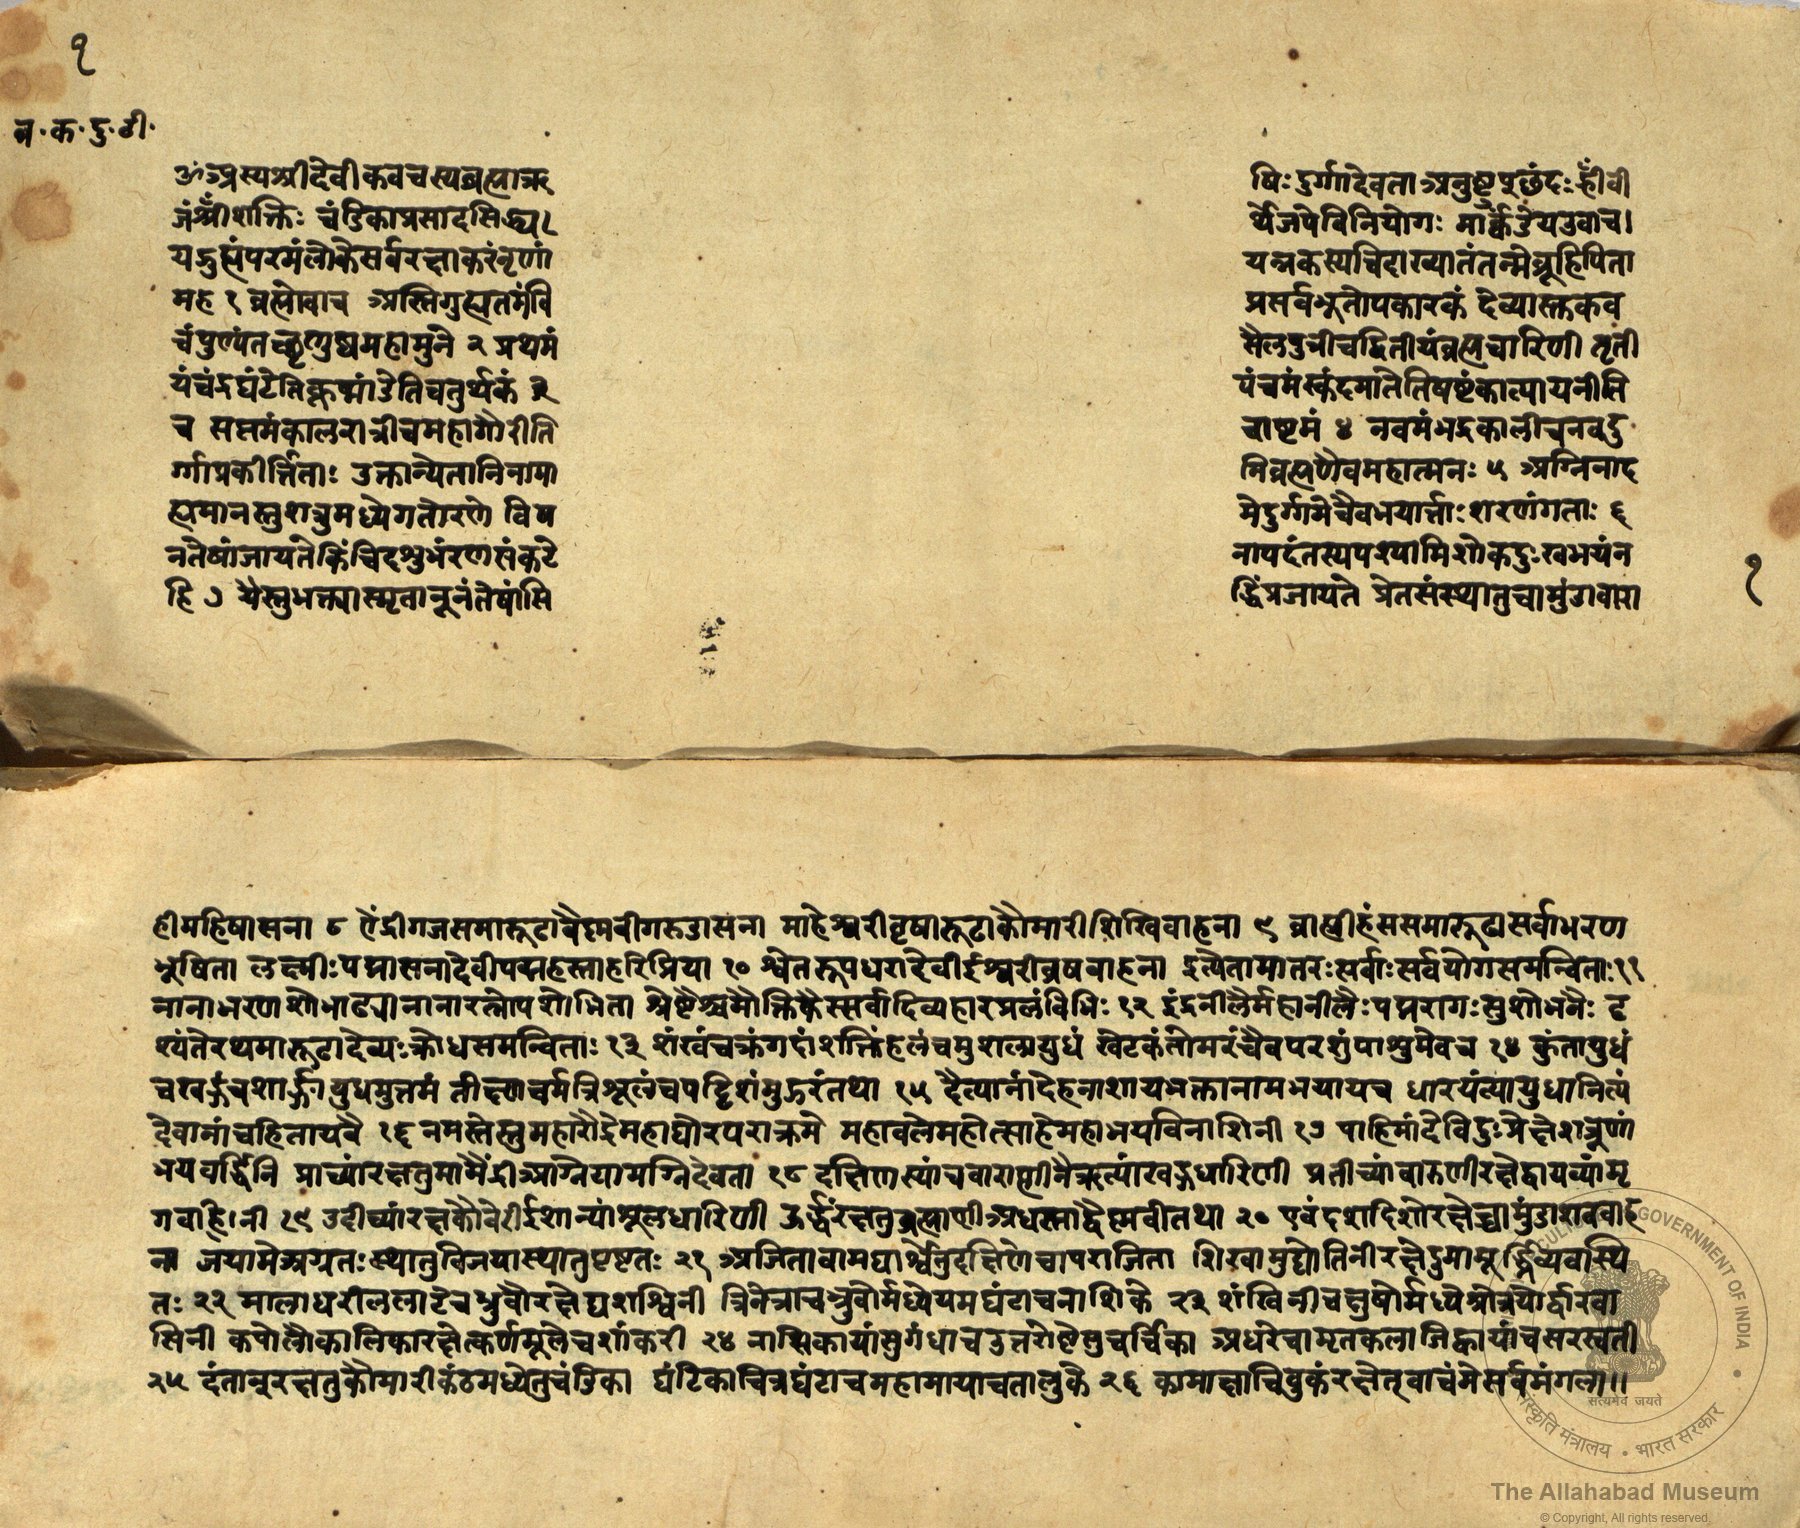 १
व॰क॰दु॰टी॰
ॐअस्यश्रीदेवीकवचस्यब्रह्माऋ षिः दुर्गादेवताअनुष्टुप्छंदः ह्रींवी
जंश्रींशक्तिः चंडिकाप्रसादसिद्ध्य। र्थेजपेविनियोगः मार्कंडेयउवाच।
यद्गुह्यंपरमंलोकेसर्वरक्षाकरंनृणां यन्नकस्यचिदाख्यातंतन्मेब्रूहिपिता
मह १ ब्रह्मोवाच अस्तिगुह्यतमंवि प्रसर्वभुतोपकारकं देव्यास्तकव
चंपुण्यंतच्छृणुष्वमहामुने २ प्रथमं सैलपुत्रीचद्वितीयंब्रह्मचारिणी तृती
यंचंद्रघंटेतिकुष्मांडेतिचतुर्थकं ३ पंचमंस्कंदमातेतिषष्टंकात्यायनीति
च सप्तमंकालरात्रीचमहागौरीति चाष्टमं ४ नवमंभद्रकालीचनवदु
र्गाप्रकीर्त्तिताः उक्तान्येतानिनामा निब्रह्मणैवमहात्मनः ५ अग्निनाद
ह्यमानस्तुशत्रुमध्येगतोरणे विष मेदुर्गमेचैवभयार्त्ताः शरणंगताः ६
नतेषांजायतेकिंचिदशुभंरणसंकटे नापदंतस्यपश्यामिशोकदुःखभयंन
हि ७ यैस्तुभक्त्यास्मृतानूनंतेषांसि द्धिंप्रजायते प्रेतसंस्थातुचामुंडावारा
१
हीमहिषासना ८ ऐंद्रीगजसमारूढावैष्णवीगरुडासना माहेश्वरीवृषारूढाकौमारीशिखिवाहना ९ ब्राह्मीहंससमारूढासर्वाभरण
भुषिता लक्ष्मीः पद्मासनादेवीपद्महस्ताहरिप्रिया १० श्वेतरूपधरादेवीईश्वरीवृषवाहना इत्येतामातरः सर्वाः सर्वयोगसमन्विताः ११
नानाभरणशोभाढ्यानानारत्नोपशोभिता श्रेष्टैश्चमौक्तिकैस्सर्वादिव्यहारप्रलंविभिः १२ इंद्रनीलैर्महानीलैः पद्मरागः सुशोभनैः दृ
श्यंतेरथमारूढादेव्यः क्रोधसमन्विताः १३ शंखंचक्रंगदांशक्तिंहलंचमुशलायुधं खेटकंतोमरंचैवपरशुंपाशुमेवच १४ कुंतायुधं
चखड्गंचशार्ङ्गायुधमुत्तमं तीक्ष्णचर्मत्रिशूलंचपट्टिशंमुद्गरंतथा १५ दैत्यानांदेहनाशायभक्तानामभयायच धारयंत्यायुधानित्यं
देवानांचहितायवै १६ नमस्तेस्तुमहारौद्रेमहाघोरपराक्रमे महाबलेमहोत्साहेमहाभयविनाशिनी १७ पाहिमांदेविदुःप्रेक्षेशत्रुणां
भयवर्द्धिनि प्राच्यांरक्षतुमामैंद्रीआग्नेयामग्निदेवता १८ दक्षिणस्यांचवाराहीनैऋत्यांखड्गधारिणी प्रतीच्यांवारुणीरक्षेद्वायव्यांमृ
गवाहिनी १९ उदीच्यांरक्षकौवेरीईशान्यांशूलधारिणी ऊर्द्धंरक्षतुब्रह्माणीअधस्ताद्वैष्णवीतथा २० एवंदशदिशोरक्षेच्चामुंडाशववाह
ना जयामेअग्रतः स्थातुविजयास्थातुपृष्टतः २१ अजितावामपार्श्वेतुदक्षिणेचापराजिता शिखामुद्योतिनीरक्षेदुमामूर्द्ध्निव्यवस्थि
तः २२ मालाधरीललाटेचभ्रुवौरक्षेद्यशश्विनी त्रिनेत्राचभ्रुवोर्मध्येयमघंटाचनाशिके २३ शंखिनीचक्षुषोर्मध्येश्रोत्रयोर्द्वारवा
सिनी कपोलौकालिकारक्षेत्कर्णमूलेचशांकरी २४ नासिकायांसुगंधाचउत्तरोष्टेसुचर्चिका अधरेचामृतकलाजिह्वायांचसरस्वती
२५ दंतानुरक्षतुकौमारीकंठमध्येतुचंडिका घंटिकाचित्रघंटाचमहामायाचतालुके २६ कामाक्षाचिवुकंरक्षेत्वाचंमेसर्वमंगला॥
GOVERNMENT OF INDIA
सत्यमेव जयते
संस्कृति मंत्रालय • भारत सरकार
The Allahabad Museum
© Copyright, All rights reserved.